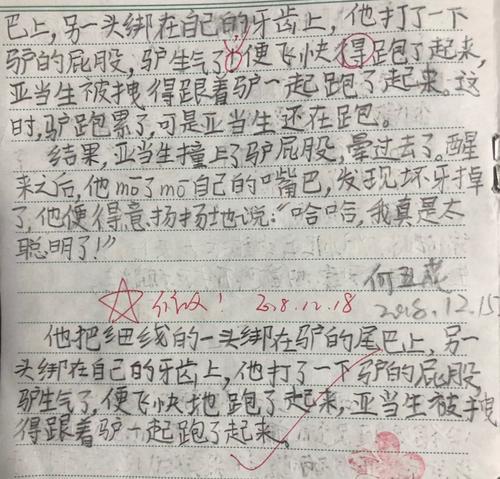 巴上,另一头绑在自己的牙齿上,他打了一下
驴的屁股,驴生气了,便飞快得跑了起来,
亚当生被拽得跟着驴一起跑了起来。这
时,驴跑累了,可是亚当生还在跑。
结果,亚当生撞上了驴屁股,晕过去了。醒
来之后,他mō了mō自己的嘴巴,发现坏牙掉
了,他便得意扬扬地说:“哈哈,我真是太
聪明了!”
2018.12.15
修改! 2018.12.18
他把细线的一头绑在驴的尾巴上,另一
头绑在自己的牙齿上,他打了一下驴的屁股
驴生气了,便飞快地跑了起来,亚当生被拽
得跟着驴一起跑了起来。